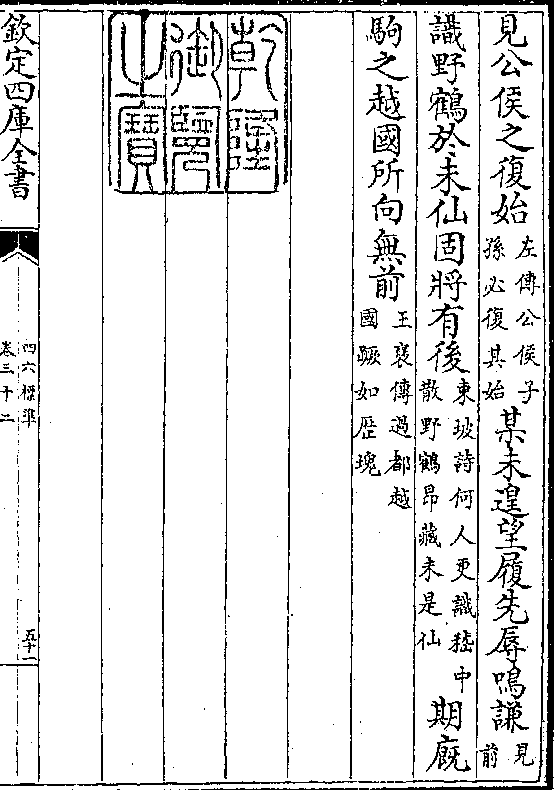 見公侯之復始左傳公侯子孫必復其始某未遑望履先辱鳴謙見前
識野鶴於未仙固將有後東坡詩何人更識嵇中散野鶴昂藏未是仙期廐
駒之越國所向無前王襃傳過都越國蹶如歴塊
乾隆御覽之寶
欽定四庫全書
四六標準
卷三十二
五十一